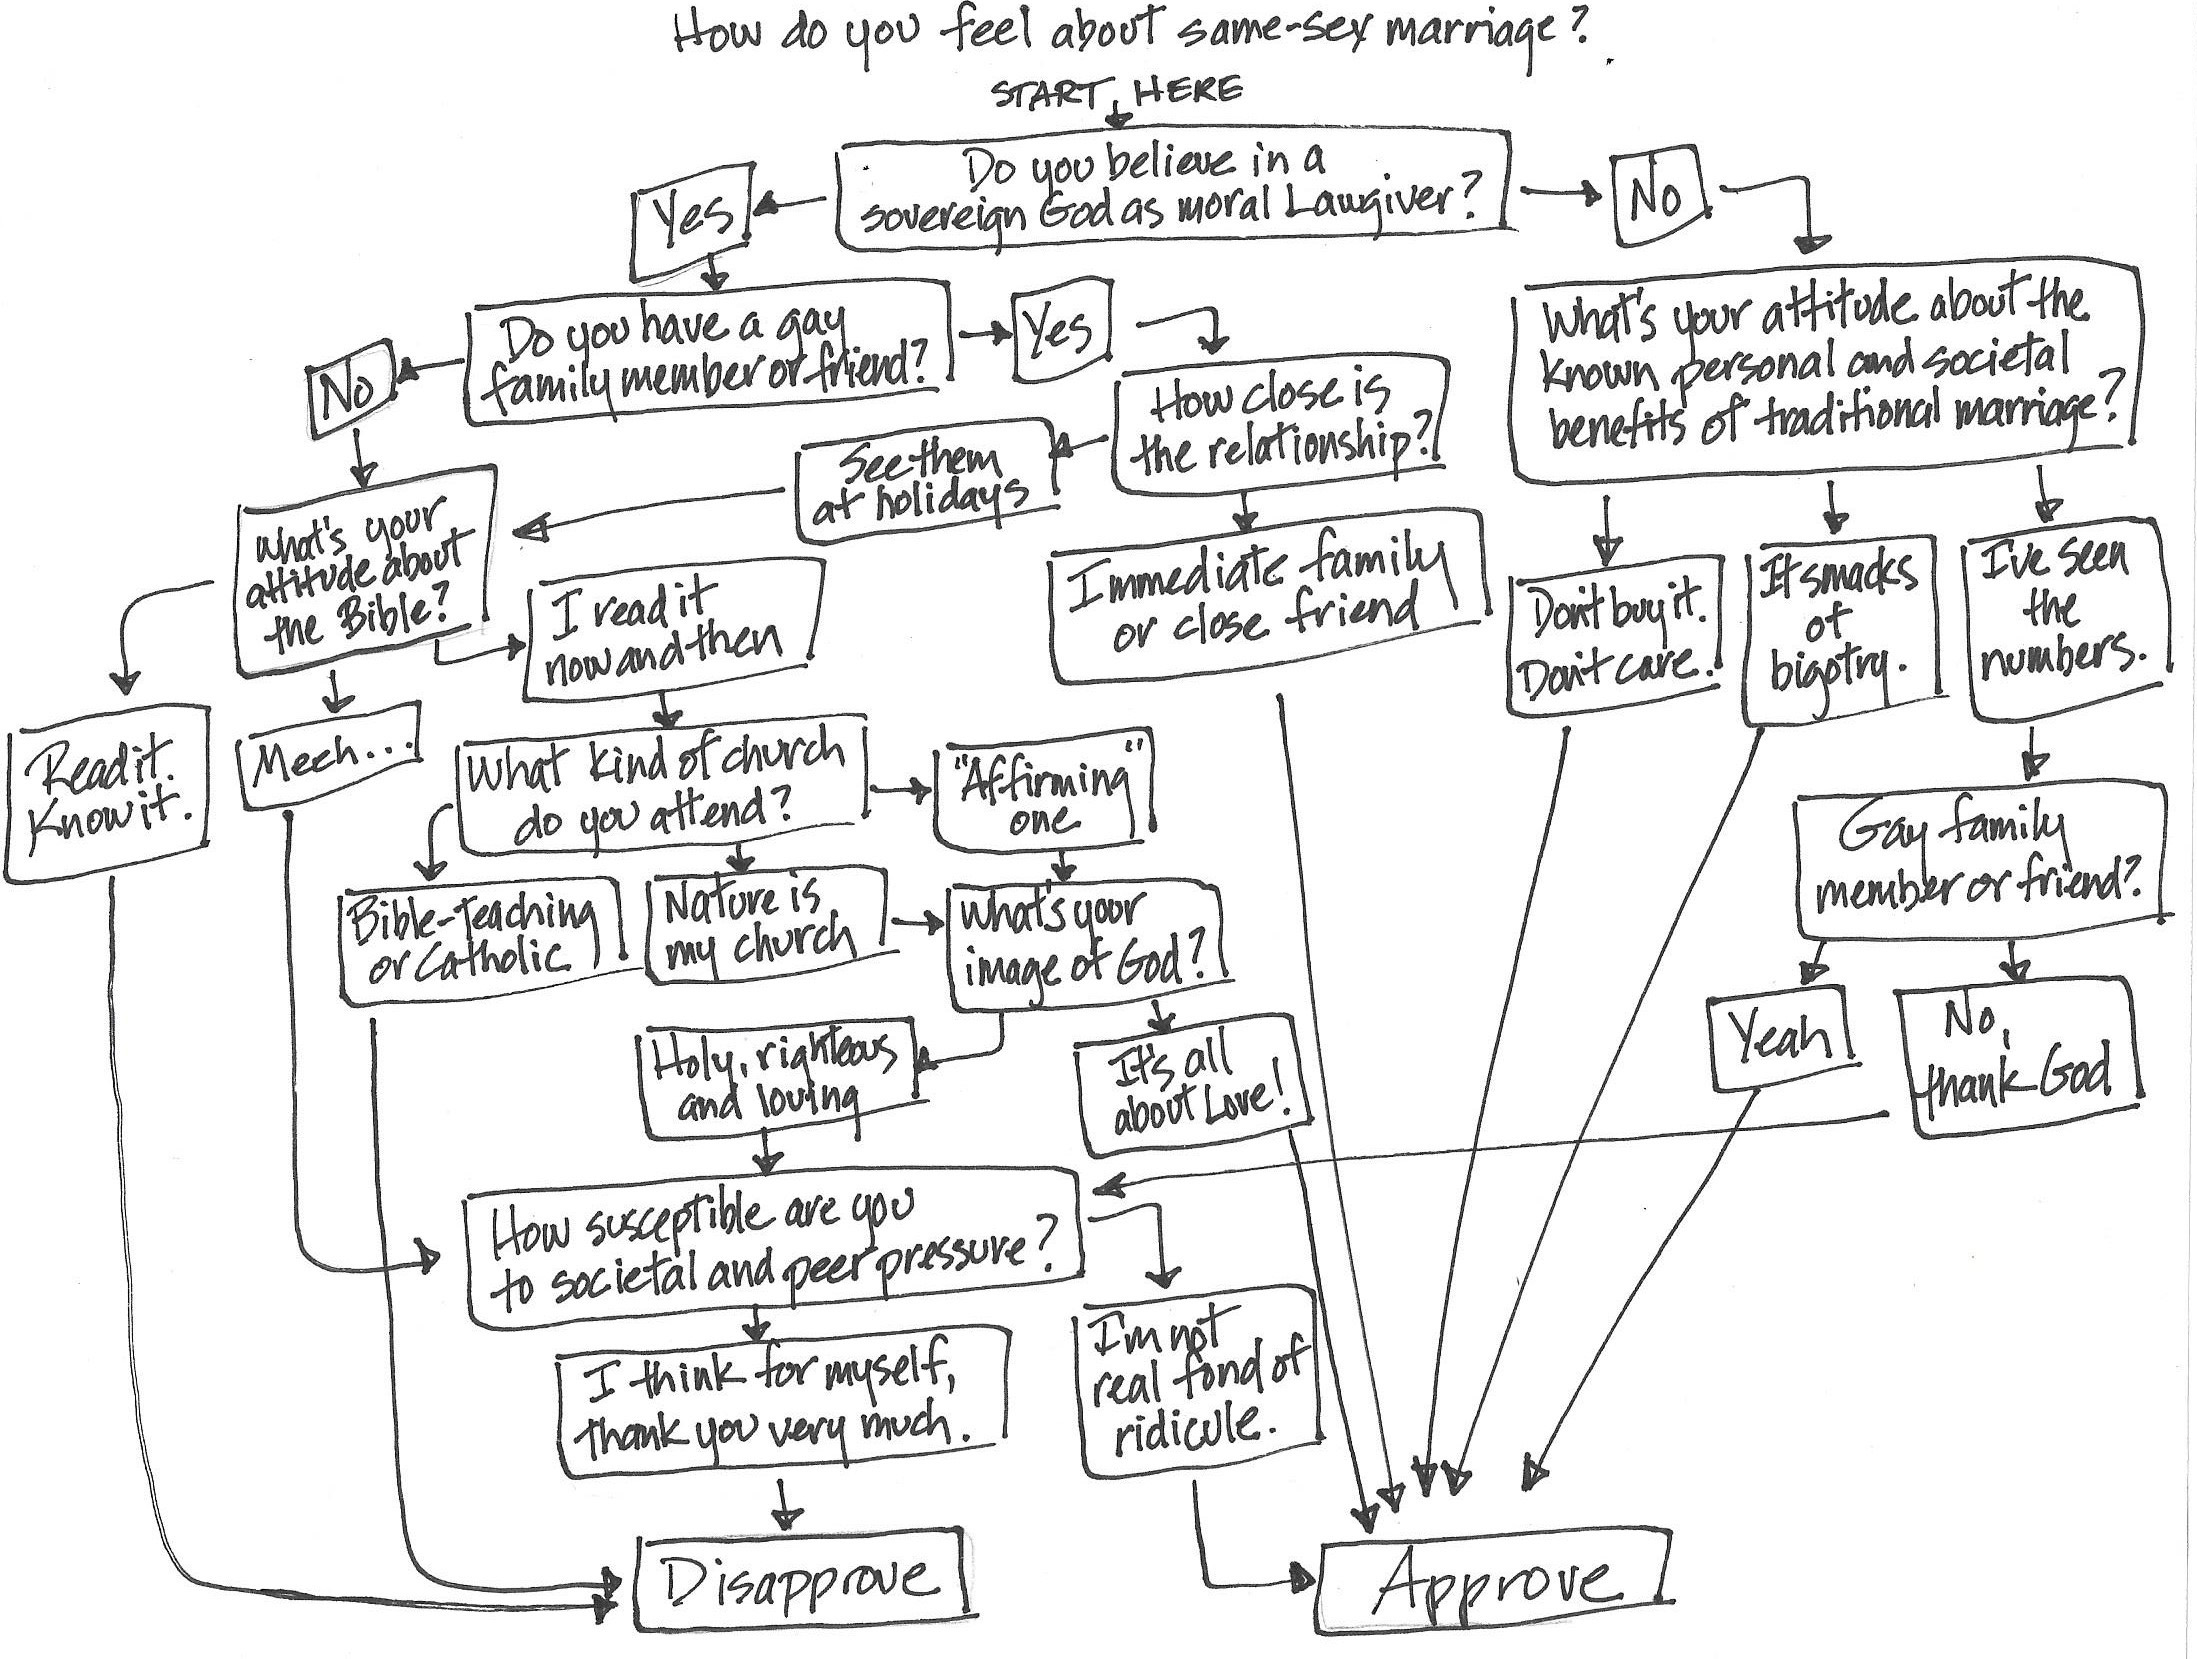 How do you feel about same-sex marriage?
START HERE
Do you believe in a
sovereign God as moral Lawgiver?
Yes
No
Do you have a gay
family member or friend?
Yes
No
How close is
the relationship?
What's your attitude about the
known personal and societal
benefits of traditional marriage?
See them
at holidays
What's your
attitude about
the Bible?
I read it
now and then
Immediate family
or close friend
Don't buy it.
Don't care.
It smacks
of
bigotry.
I've seen
the
numbers.
Read it.
Know it.
Meeh...
What kind of church
do you attend?
"Affirming"
one
Gay family
member or friend?
Bible-Teaching
or Catholic
Nature is
my church
What's your
image of God?
Yeah
No,
thank God
Holy, righteous
and loving
It's all
about Love!
How susceptible are you
to societal and peer pressure?
I think for myself,
thank you very much.
I'm not
real fond of
ridicule.
Disapprove
Approve